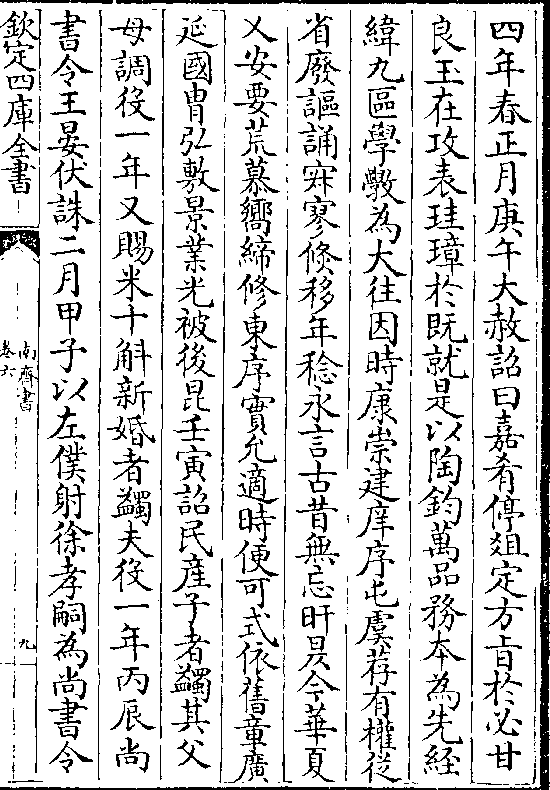 四年春正月庚午大赦詔曰嘉肴停俎定方旨於必甘
良玉在攻表珪璋於既就是以陶鈞萬品務本為先經
緯九區學斆為大往因時康崇建庠序屯虞荐有權從
省廢謳誦寂寥倐移年稔永言古昔無忘旰昃今華夏
乂安要荒慕嚮締修東序實允適時便可式依舊章廣
延國胄弘敷景業光被後昆壬寅詔民產子者蠲其父
母調役一年又賜米十斛新婚者蠲夫役一年丙辰尚
書令王晏伏誅二月甲子以左僕射徐孝嗣為尚書令
欽定四庫全書
南齊書
卷六
九